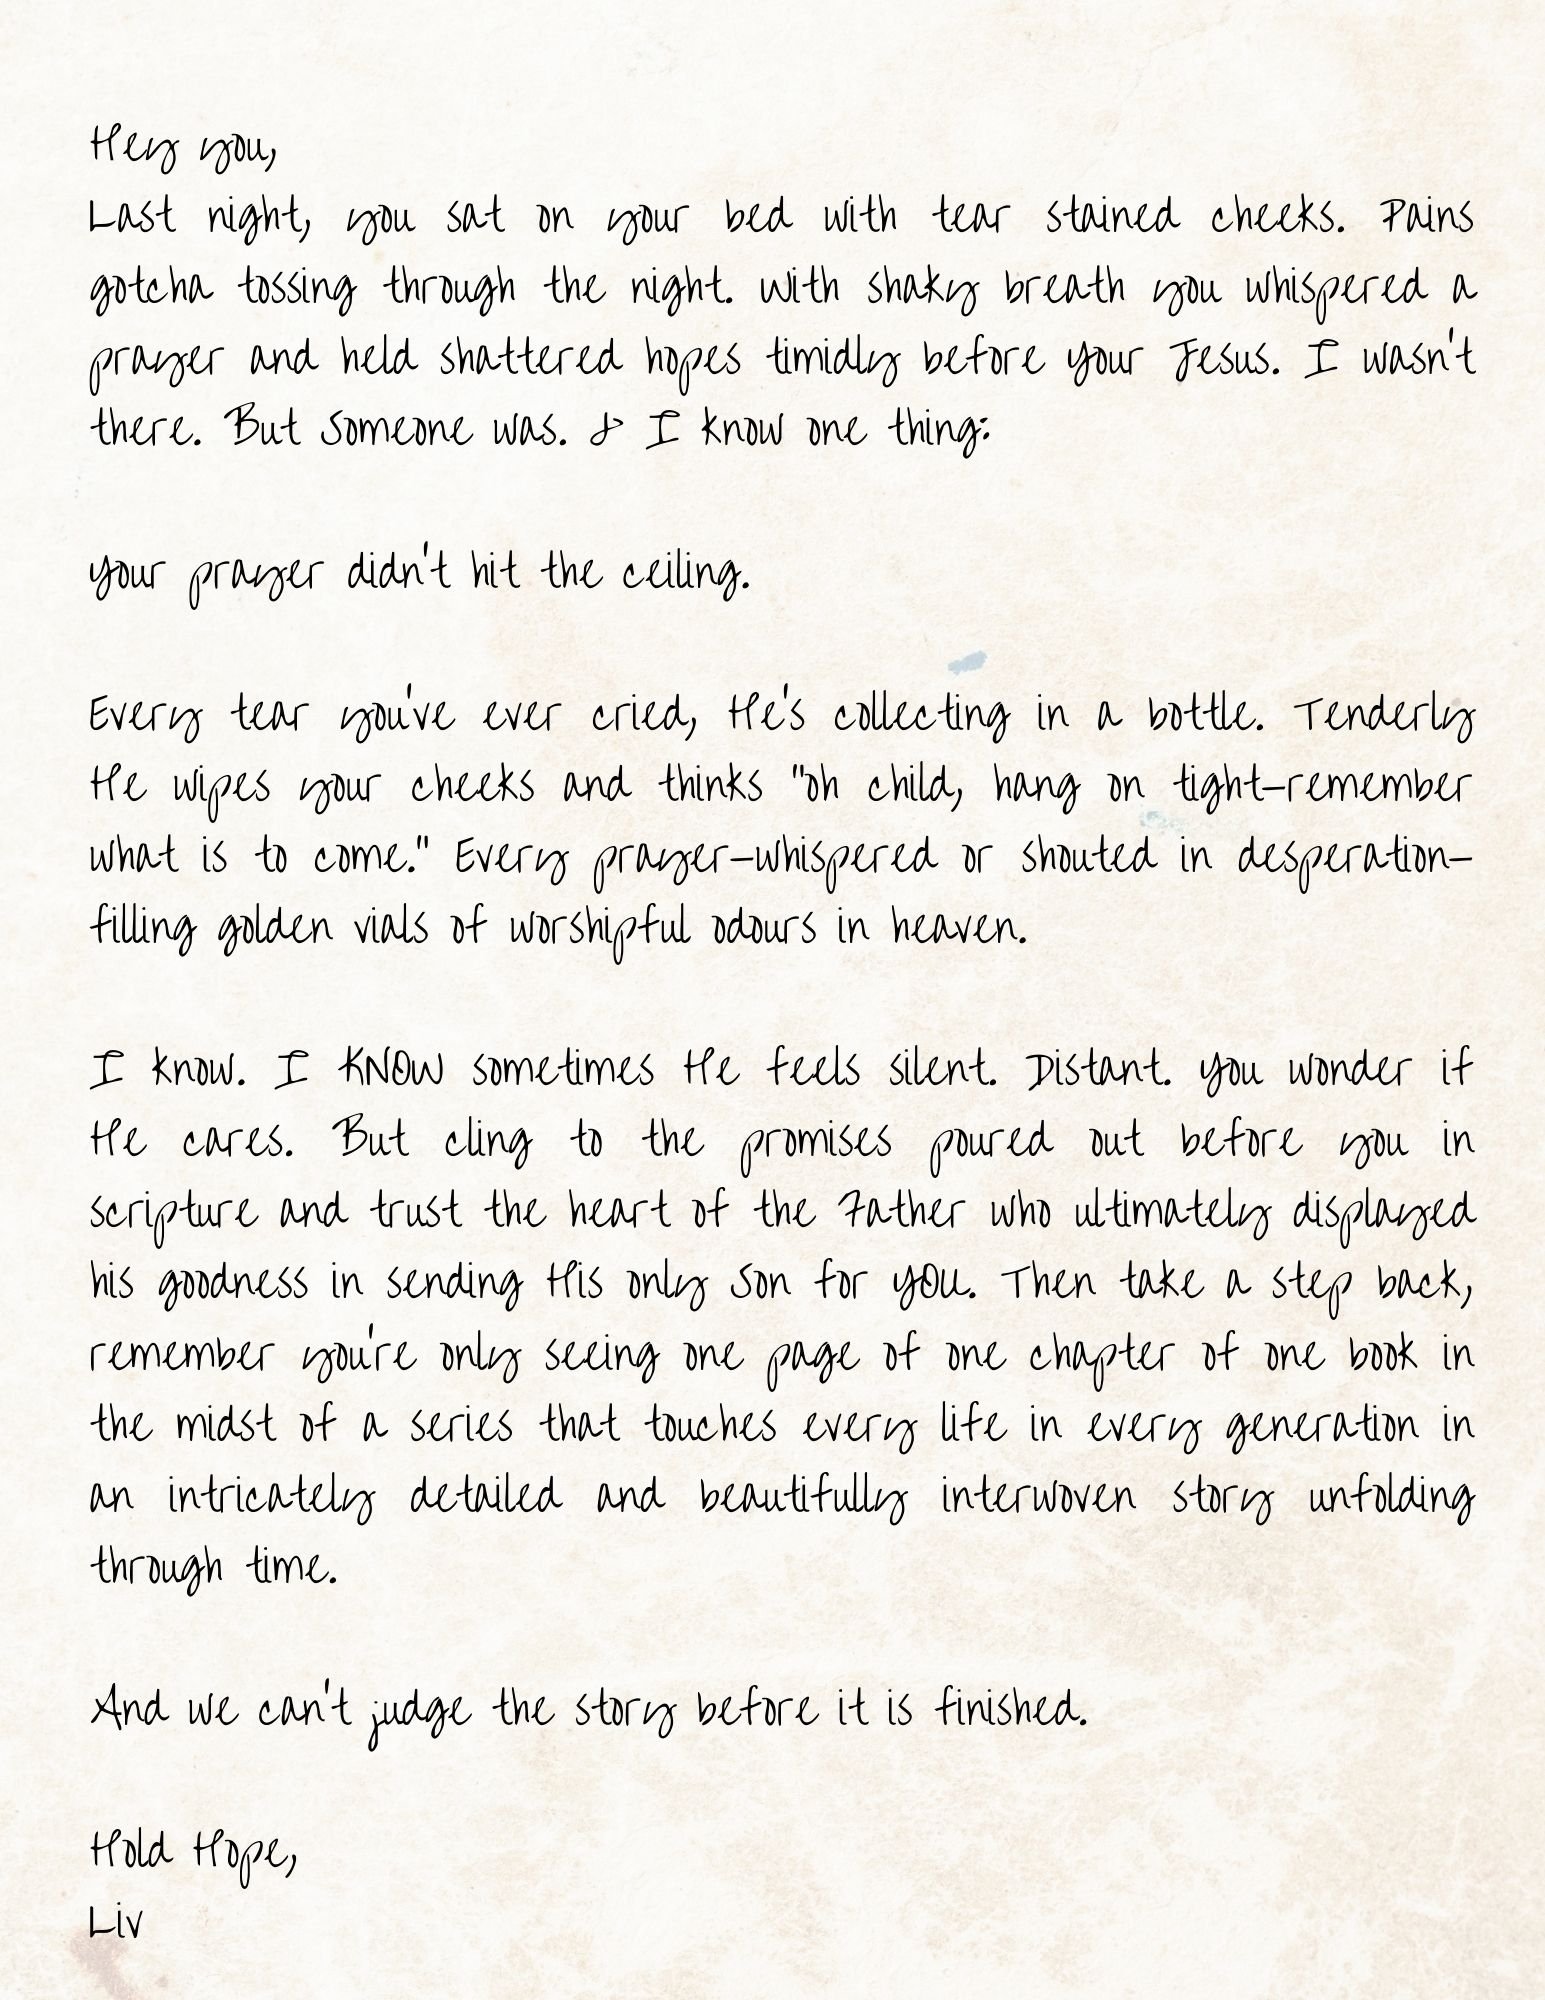 Hey you,
Last night, you sat on your bed with tear stained cheeks. Pains
gotcha tossing through the night. With shaky breath you whispered a
prayer and held shattered hopes timidly before your Jesus. I wasn't
there. But Someone was. & I know one thing:
Your prayer didn't hit the ceiling.
Every tear you've ever cried, He's collecting in a bottle. Tenderly
He wipes your cheeks and thinks "oh child, hang on tight—remember
what is to come." Every prayer—whispered or shouted in desperation—
filling golden vials of worshipful odours in heaven.
I know. I KNOW sometimes He feels silent. Distant. You wonder if
He cares. But cling to the promises poured out before you in
scripture and trust the heart of the Father who ultimately displayed
his goodness in sending His only Son for YOU. Then take a step back,
remember you're only seeing one page of one chapter of one book in
the midst of a series that touches every life in every generation in
an intricately detailed and beautifully interwoven story unfolding
through time.
And we can't judge the story before it is finished.
Hold Hope,
Liv